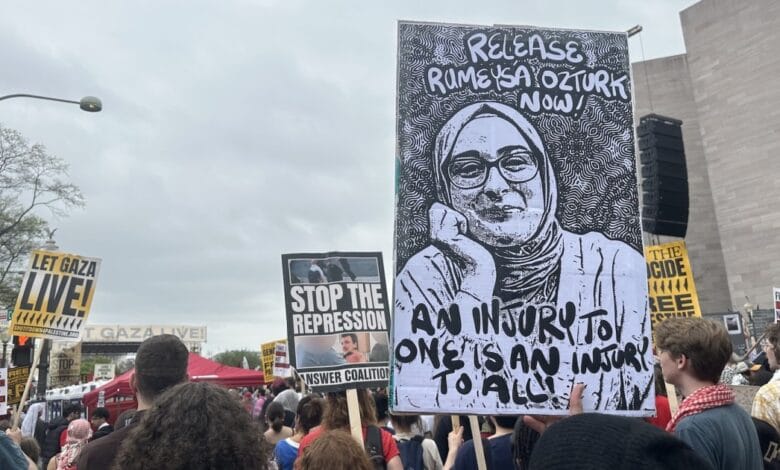 RELEASE
RUMEYSA OZTURK
NOW!
AN INJURY TO
ONE IS AN INJURY
TO ALL!
STOP THE
REPRESSION
ANSWER COALITION
LET GAZA
LIVE!
SHUTITDOWN4PALESTINE.ORG
LET GAZA LIVE!
THE
FREE